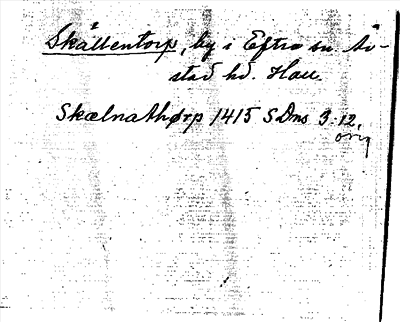 Skållentorp, by i Eftra sn År-
stad hd. Hall.
Skælnathørp 1415 SDns 3.12,
orig